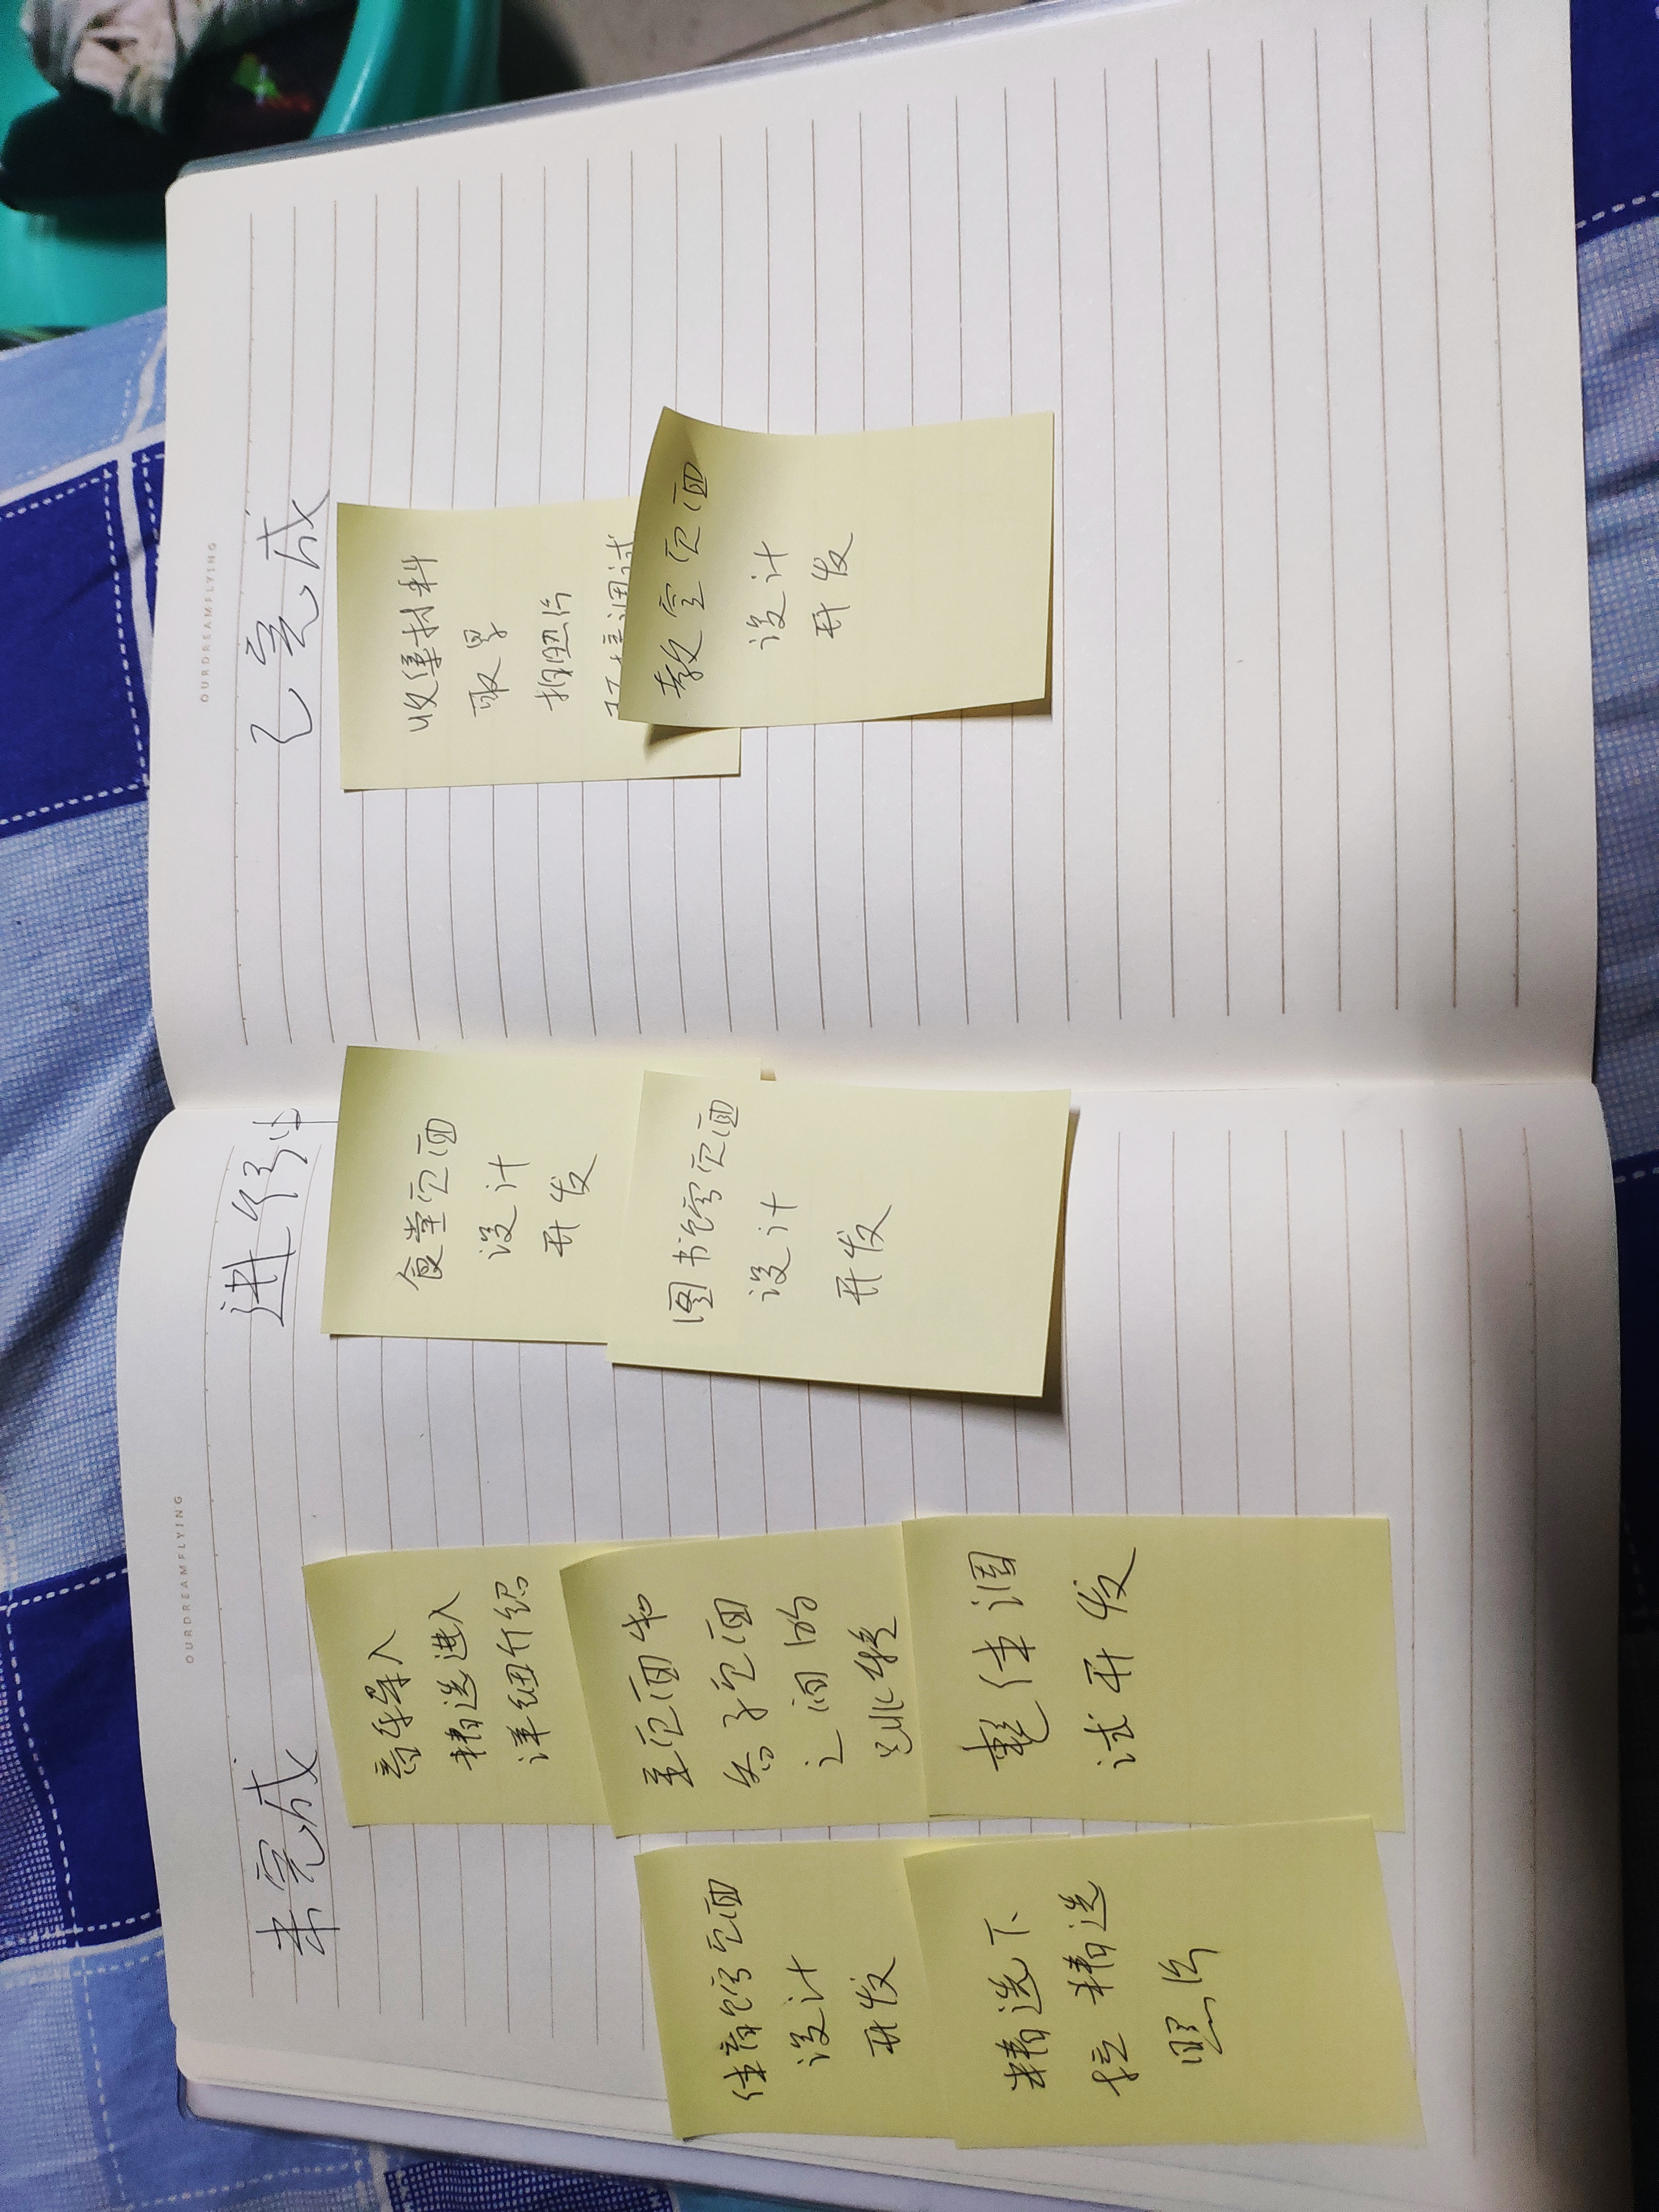 OURDREAMFLYING
未完成
进行中
音乐导入
精选进入
详细介绍
主页面与
各子页面
之间的
跳转
整体调
试开发
体育馆页面
设计
开发
精选下
拉精选
照片
食堂页面
设计
开发
图书馆页面
设计
开发
OURDREAMFLYING
已完成
收集材料
取景
拍照片
教室页面
设计
开发